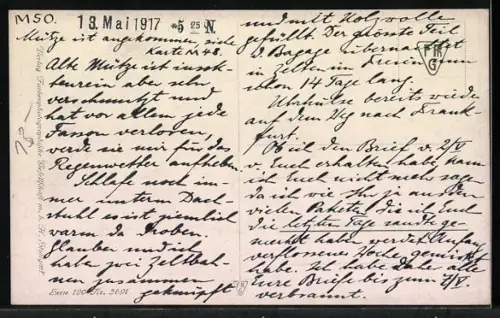 M50.
13. Mai 1917 *5 25 N.
Mütze ist angekommen siehe
Karte Nr. 48.
Alte Mütze ist
aber sehr
verschmutzt und
hat vor allem jede
Fasson verloren,
werde sie mir für das
Regenwetter aufheben.
Schlafe noch im-
mer unterm Dach-
stuhl es ist ziemlich
warm da droben.
Glauber und ich
haben zwei Zeltbah-
nen zusammen
geknüpft
und mit Holzwolle
gefüllt. Der grösste Teil
d. Bagage übernachtet
in Zelten im Freien nun
schon 14 Tage lang.
bereits wieder
auf dem Weg nach Frank-
furt.
Ob ich den Brief v. 2/V
v. Euch erhalten habe, kann
ich Euch nicht mehr sagen
da ich wie Ihr ja aus den
vielen Paketen die ich Euch
die letzten Tage sandte ge-
merkt haben werdet Anfang
verflossener Woche gemistet
habe. Ich habe daher alle
Eure Briefe bis zum 7/V.
verbrannt.
Serie 120 No. 3691